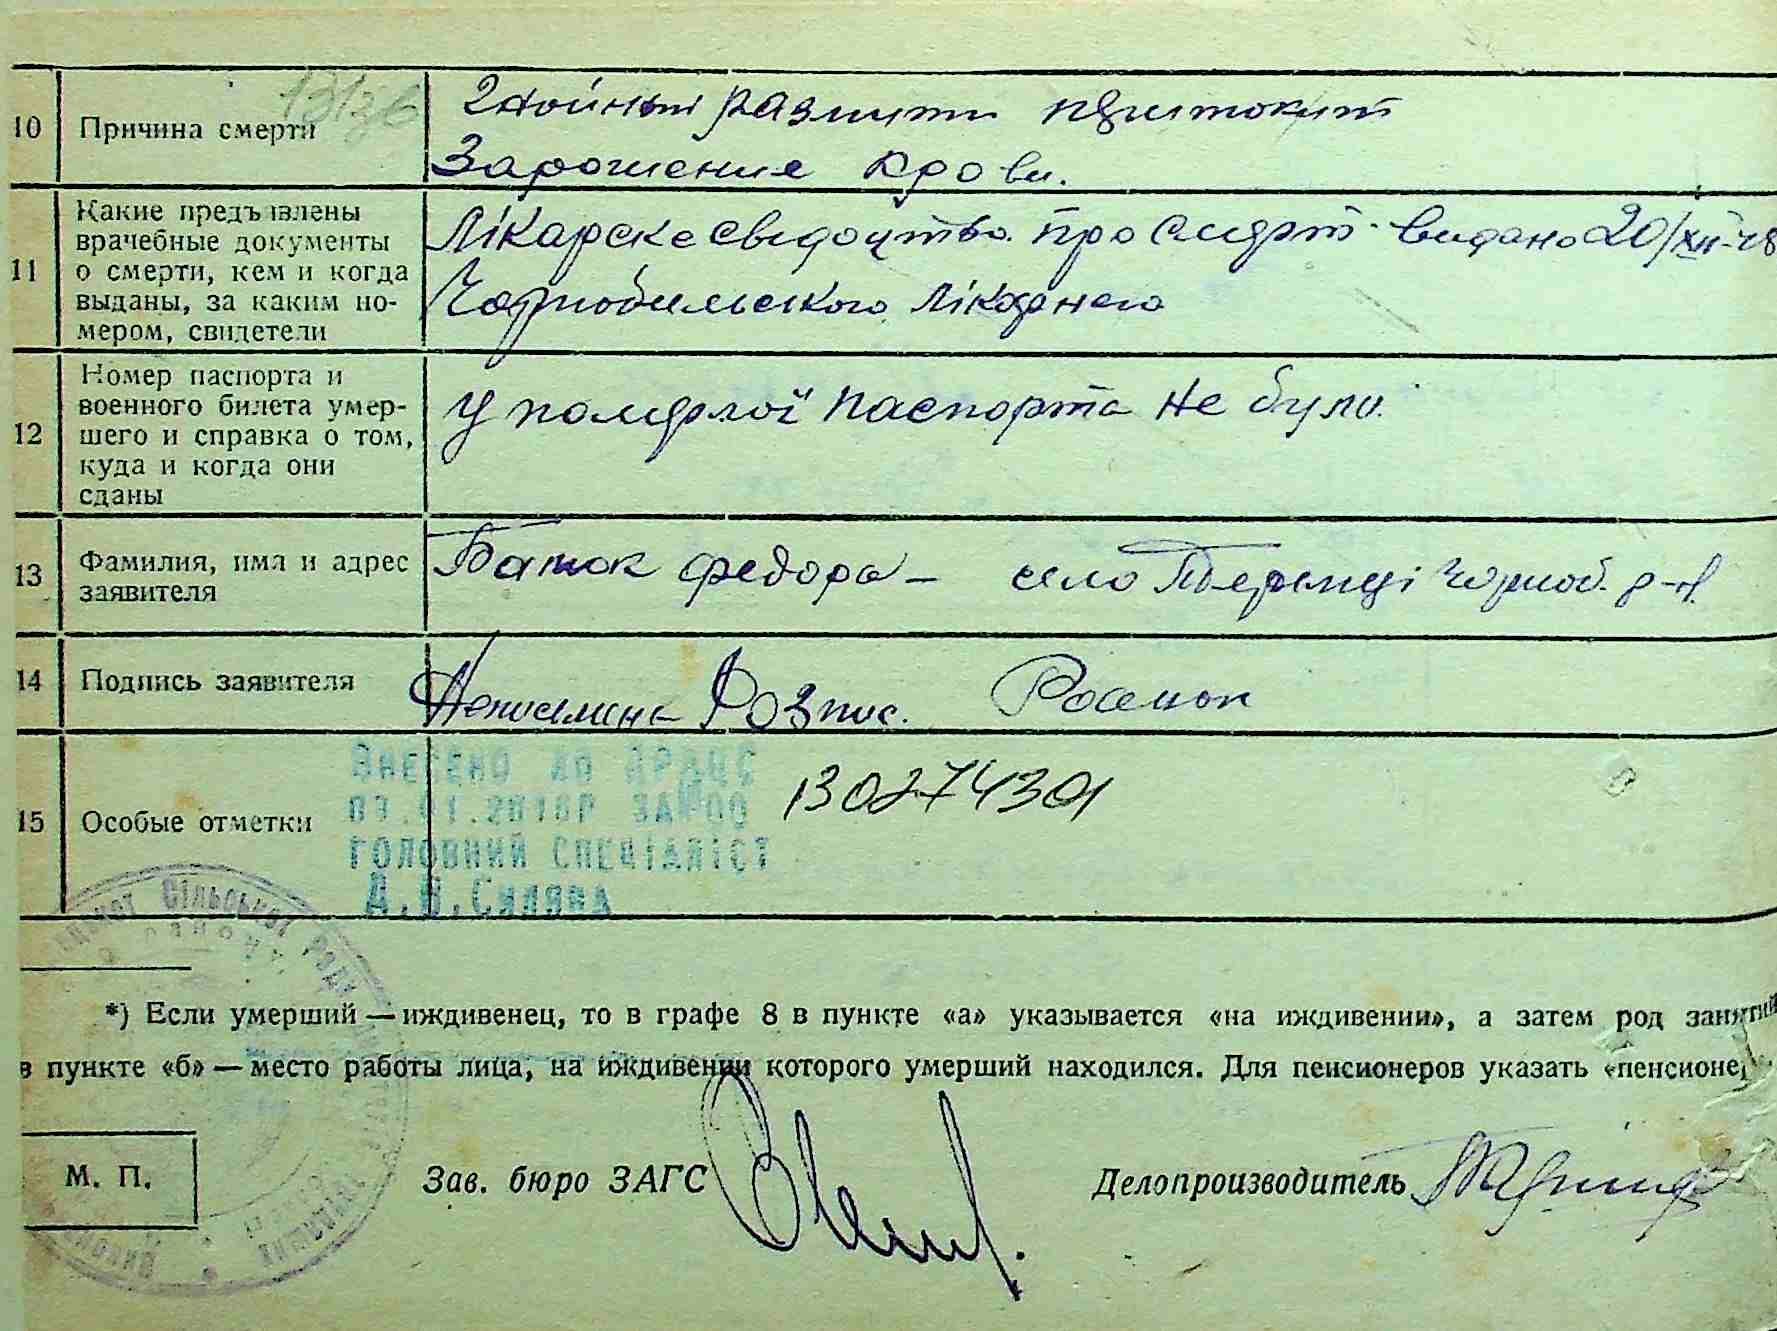 10 Причина смерти
Гнойный размити перитонит
Зарошения крови.
11 Какие предъявлены
врачебные документы
о смерти, кем и когда
выданы, за каким но-
мером, свидетели
Лікарске свідоцтво про смерт видано 20/XII-48
Чорнобильского лікарнею
12 Номер паспорта и
военного билета умер-
шего и справка о том,
куда и когда они
сданы
У померлої паспорта не було.
13 Фамилия, имя и адрес
заявителя
Батюк Федора — село Теремці Чорноб. р-н.
14 Подпись заявителя
Неписьмена Розпис.
15 Особые отметки
Внесено до ДРАЦС
головний спеціаліст
130274301
Сільської Ради
*) Если умерший — иждивенец, то в графе 8 в пункте «а» указывается «на иждивении», а затем род занятий
в пункте «б» — место работы лица, на иждивении которого умерший находился. Для пенсионеров указать «пенсионер
М. П.
Зав. бюро ЗАГС
Делопроизводитель